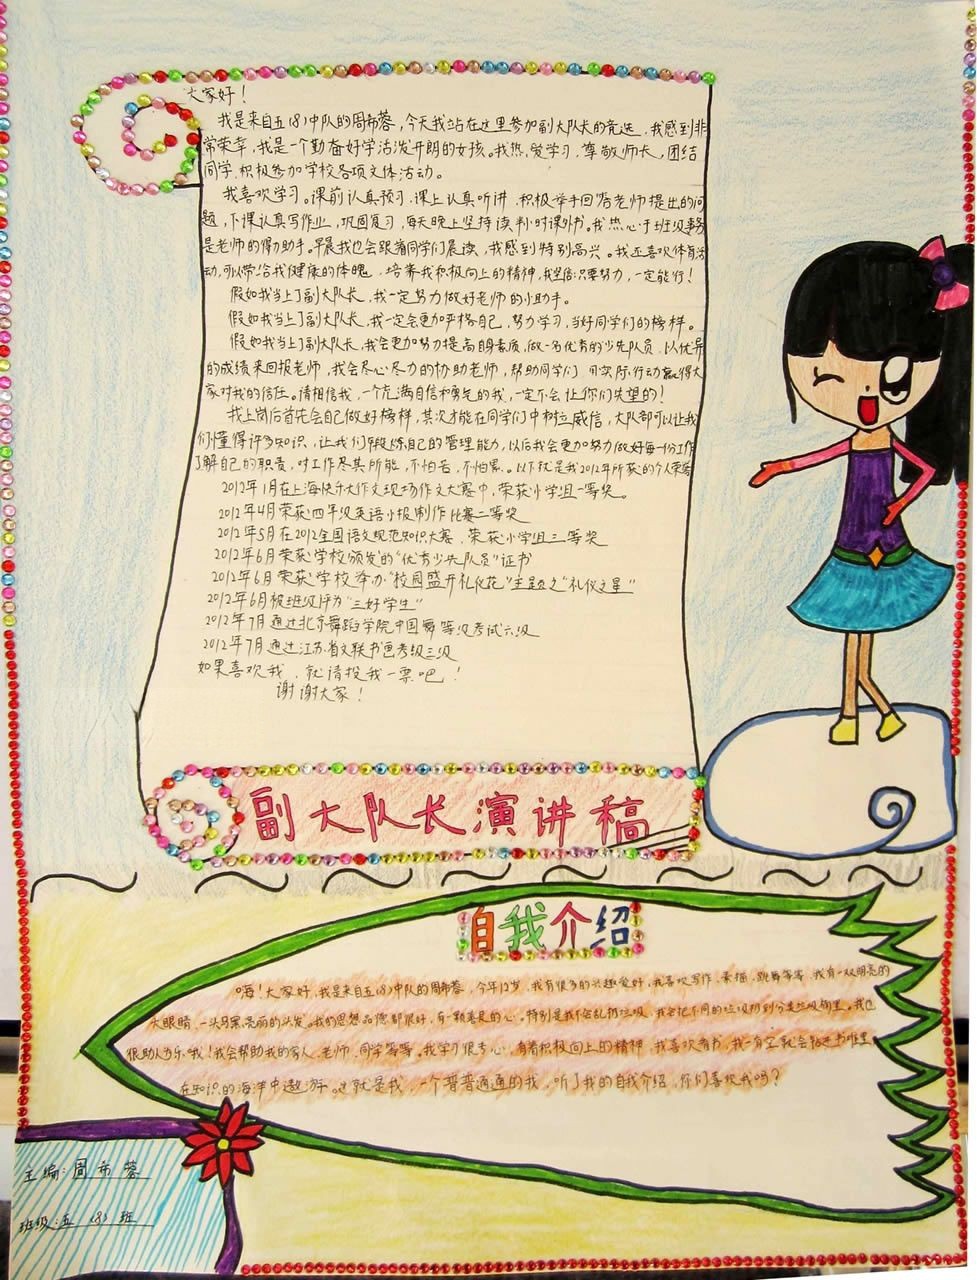 大家好！
我是来自五(8)中队的周布蓉，今天我站在这里参加副大队长的竞选，我感到非
常荣幸，我是一个勤奋好学活泼开朗的女孩。我热爱学习，尊敬师长，团结
同学，积极参加学校各项文体活动。
我喜欢学习。课前认真预习，课上认真听讲，积极举手回答老师提出的问
题，下课认真写作业，巩固复习，每天晚上坚持读半小时课外书。我热心于班级事务
是老师的得力助手。早晨我也会跟着同学们晨读，我感到特别高兴。我还喜欢体育活
动，可以带给我健康的体魄，培养我积极向上的精神，我坚信：只要努力，一定能行！
假如我当上了副大队长，我一定努力做好老师的小助手。
假如我当上了副大队长，我一定会更加严格自己，努力学习，当好同学们的榜样。
假如我当上了副大队长，我会更加努力提高自身素质，做一名优秀的少先队员，以优异
的成绩来回报老师，我会尽心尽力的协助老师，帮助同学们，用实际行动赢得大
家对我的信任。请相信我，一个充满自信和勇气的我，一定不会让你们失望的！
我上岗后首先会自己做好榜样，其次才能在同学们中树立威信，大队部可以让我
们懂得许多知识，让我们锻炼自己的管理能力，以后我会更加努力做好每一份工作
了解自己的职责，对工作尽其所能，不怕苦，不怕累。以下就是我2012年所获的个人荣誉
2012年1月在上海快乐大作文现场作文大赛中，荣获小学组一等奖。
2012年4月荣获四年级英语小报制作比赛二等奖
2012年5月在2012全国语文规范知识大赛，荣获小学组三等奖
2012年6月荣获学校颁发的“优秀少先队员”证书
2012年6月荣获学校举办“校园盛开礼仪花”主题之“礼仪之星”
2012年6月被班级评为“三好学生”
2012年7月通过北京舞蹈学院中国舞等级考试六级
2012年7月通过江苏省文联书画考级三级
如果喜欢我，就请投我一票吧！
谢谢大家！
副大队长演讲稿
自我介绍
嗨！大家好，我是来自五(8)中队的周布蓉，今年12岁，我有很多的兴趣爱好，我喜欢写作、素描、跳舞等等，我有一双明亮的
大眼睛，一头乌黑亮丽的头发。我的思想品德都很好，有一颗善良的心。特别是我不会乱扔垃圾，我会把不同的垃圾扔到分类垃圾箱里。我也
很助人为乐哦！我会帮助我的家人、老师、同学等等。我学习很专心，有着积极向上的精神，我喜欢看书，我一有空就会钻进书堆里
在知识的海洋中遨游。这就是我，一个普普通通的我，听了我的自我介绍，你们喜欢我吗？
主编：周布蓉
班级：五（8）班